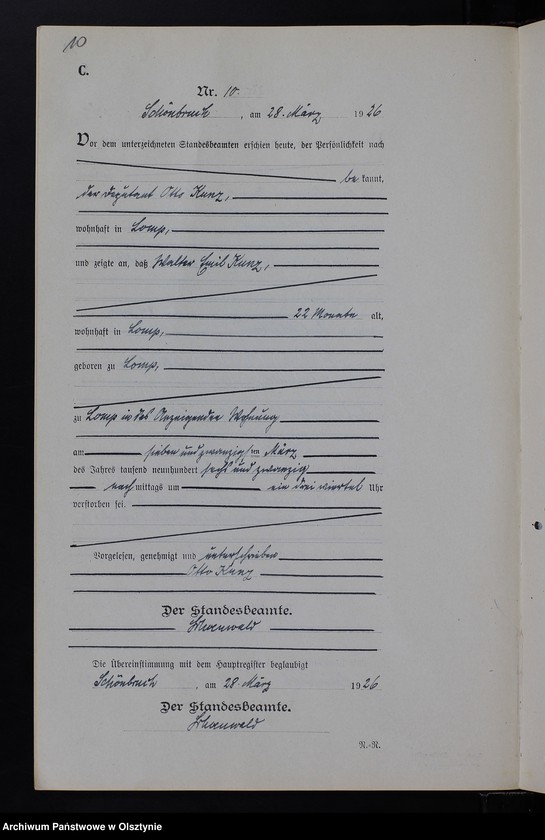 10
C.
Nr. 10.
Schönbruch, am 28. März 1926
Vor dem unterzeichneten Standesbeamten erschien heute, der Persönlichkeit nach
bekannt,
der Deputant Otto Kunz,
wohnhaft in Lomp,
und zeigte an, daß Walter Emil Kunz,
22 Monate alt,
wohnhaft in Lomp,
geboren zu Lomp,
zu Lomp in des Anzeigenden Wohnung
am sieben und zwanzigsten März
des Jahres tausend neunhundert sechs und zwanzig
nachmittags um ein drei viertel Uhr
verstorben sei.
Vorgelesen, genehmigt und unterschrieben
Otto Kunz
Der Standesbeamte.
Die Übereinstimmung mit dem Hauptregister beglaubigt
Schönbruch, am 28. März 1926
Der Standesbeamte.
N.-R.
Archiwum Państwowe w Olsztynie